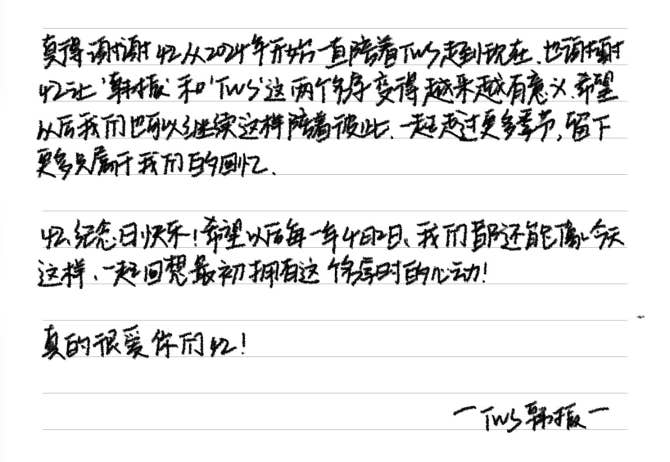 真得谢谢42从2024年开始一直陪着TWS走到现在.也谢谢
42让'韩振'和'TWS'这两个名字变得越来越有意义.希望
以后我们也可以继续这样陪着彼此.一起走过更多季节,留下
更多只属于我们的回忆.
42纪念日快乐!希望以后每一年4月2日、我们都还能像今天
这样、一起回想最初拥有这个名字时的心动!
真的很爱你们42!
一TWS韩振一